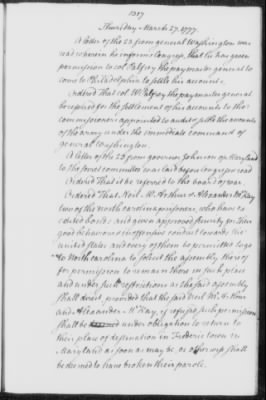 1317
Thursday March 27. 1777.
A letter of the 23 from general Washington was
read wherein he informs Congress, that he has given
permission to col. Palfrey the paymaster general to
come to Philadelphia to settle his accounts.
Ordered That col. W. Palfrey the paymaster general
be referred for the settlement of his accounts to the
commissioners appointed to audit & settle the accounts
of the army under the immediate command of
general Washington.
A letter of the 23 from governor Johnson of Maryland
to the secret committee was laid before Congress & read
Ordered That it be referred to the board of war.
Ordered That Neil Mc Arthur & Alexander Mc Kay
two of the north carolina prisoners, who have ex-
ecuted bonds and given approved security for their
good behaviour & inoffensive conduct towards the
united states and every of them be permitted to go
to North carolina to solicit the assembly thereof
for permission to remain there in such place
and under such restrictions as the said assembly
shall direct, provided that the said Neil Mc Arthur
and Alexander Mc Kay, if refused such permission
shall be under obligation to return to
their place of destination in Frederic town in
Maryland as soon as may be, or otherwise shall
be deemed to have broken their parole.